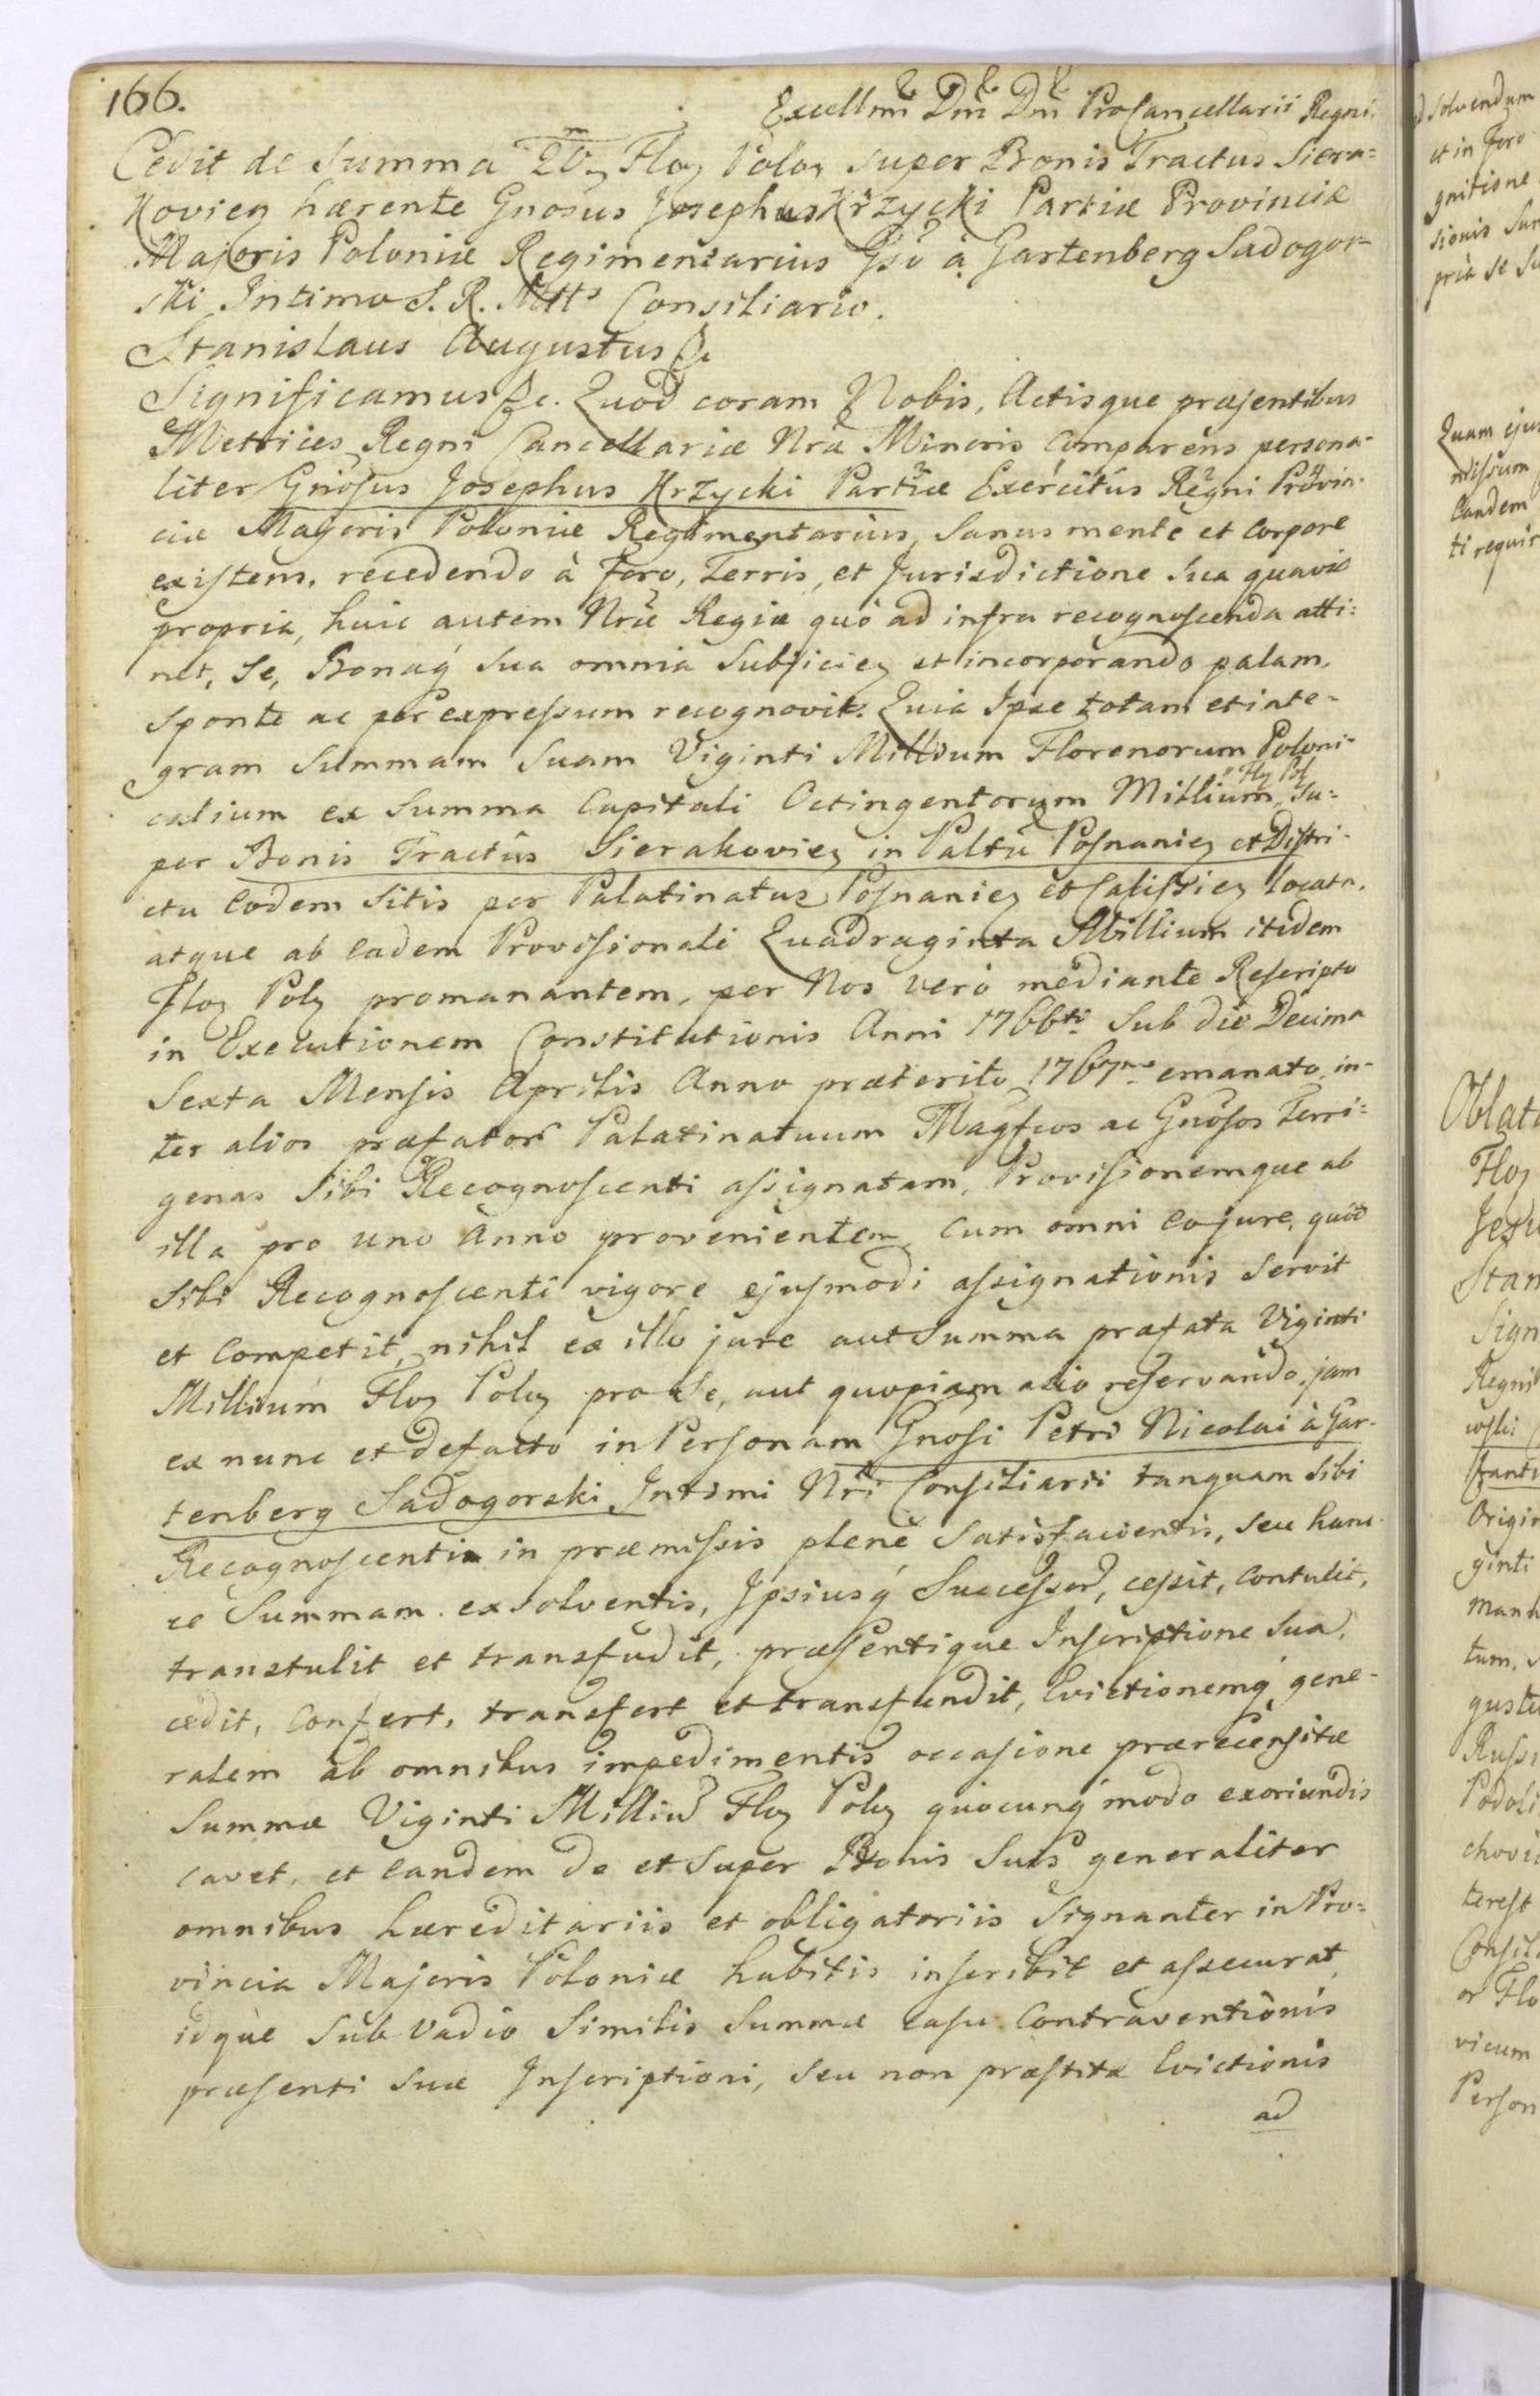 166.
Excellmi Dni Dni ProCancellarii Regni.
Cedit de Summa 20 m Floz Poloz super Bonis Tractus Siera=
Koviez hærente Gnosus Josephus Krzycki Partiæ Provinciæ
Majoris Poloniæ Regimentarius Gso à Gartenberg Sadogor=
ski Intimo S. R. Mtts Consiliario.
Stanislaus Augustus &c
Significamus &c. Quod coram Nobis, Actisque præsentibus
Metrices Regni Cancellariæ Nræ Minoris comparens persona-
liter Gnosus Josephus Krzycki Partiæ Exercitûs Regni Provin-
ciæ Majoris Poloniæ Regimentarius, Sanus mente et corpore
existens, recedendo à Foro, Terris, et Jurisdictione Sua quavis
propria, huic autem Nræ Regiæ quo ad infra recognoscenda atti=
net, Se, Bonaq́ Sua omnia Subjiciez et incorporando palam,
Sponte ac per expressum recognovit. Quia Ipse totam et inte-
gram Summam Suam Viginti Millium Florenorum Poloni-
calium ex Summa Capitali Octingentorum Millium Flz Pol Su=
per Bonis Tractûs Sierakoviez in Palttu Posnaniez et Distri-
ctu eodem Sitis per Palatinatus Posnaniez et Calissiez locata,
atque ab eadem Provisionali Quadraginta Millium itidem
Floz Polz promanantem, per Nos verò mediante Rescripto
in Executionem Constitutionis Anni 1766ti Sub die Decima
Sexta Mensis Aprilis Anno præterito 1767mo emanato, in-
ter alios præfator Palatinatuum Magfcos ac Gnosos Terri=
genas Sibi Recognoscenti assignatam, Provisionemque ab
illa pro uno Anno provenientem, cum omni eo jure, quod
Sibi Recognoscenti vigore ejusmodi assignationis Servit
et competit, nihil ex illo jure aut Summa præfata Viginti
Millium Floz Poloz pro Se, aut quopiam alio reservando, jam
ex nunc et defacto in Personam Gnosi Petri Nicolai à Gar-
tenberg Sadogorski Intimi Nri Consiliarii tanquam Sibi
Recognoscenti in præmissis plenè Satisfacientis, seu hanc-
ce Summam exsolventis, Ipsiusq́ Successor, cessit, contulit,
transtulit et transfudit, præsentique Inscriptione Sua,
cedit, confert, transfert et transfundit, Evictionemq́ gene-
ralem ab omnibus impedimentis occasione prærecensitæ
Summæ Viginti Milliu Floz Poloz quocunq́ modo exoriundis
cavet, et eandem de et Super Bonis Suis generaliter
omnibus hæreditariis et obligatoriis Signanter in Pro=
vincia Majoris Poloniæ habitis inscribit et assecurat,
idque Sub vadio Similis Summæ casu Contraventionis
præsenti Suæ Inscriptioni, Seu non præstitæ Evictionis
ad
d Solvendum
et in Foro
gnitione
sionis
Quam ejus
missum
Eandem
ti requir
Oblata
Floz
Stan
Sign
Regni
Origin
ginti
tum,
Russi
Podoli
terest
Consil
vicum
Person